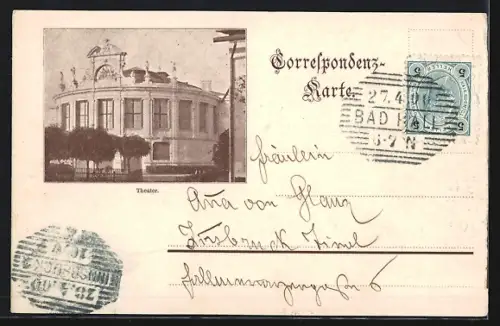 Correspondenz-
Karte.
5 5
27.4.00
BAD HALL
6-7 N
Theater.
Fräulein
von Glanz
Insbruck Tirol
6
INNSBRUCK
28.4.00